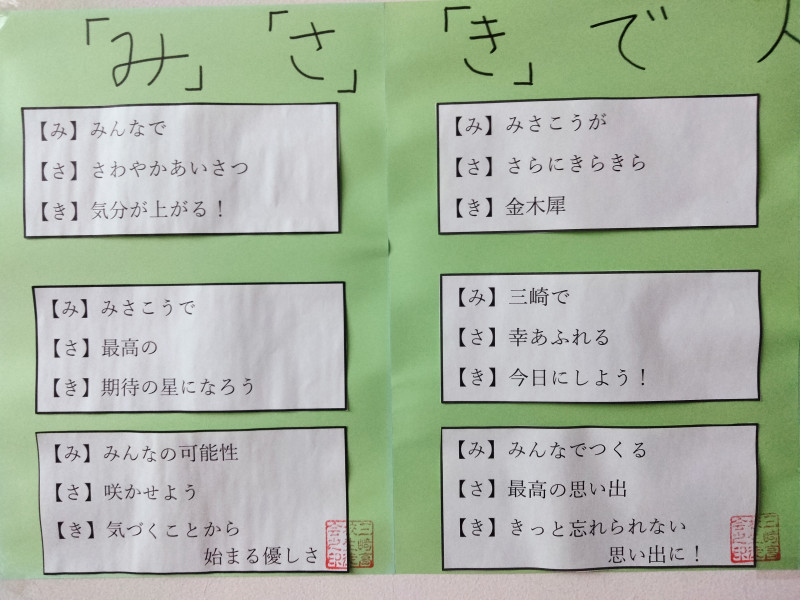 「み」「さ」「き」で
【み】みんなで
【さ】さわやかあいさつ
【き】気分が上がる！
【み】みさこうで
【さ】最高の
【き】期待の星になろう
【み】みんなの可能性
【さ】咲かせよう
【き】気づくことから
始まる優しさ
【み】みさこうが
【さ】さらにきらきら
【き】金木犀
【み】三崎で
【さ】幸あふれる
【き】今日にしよう！
【み】みんなでつくる
【さ】最高の思い出
【き】きっと忘れられない
思い出に！